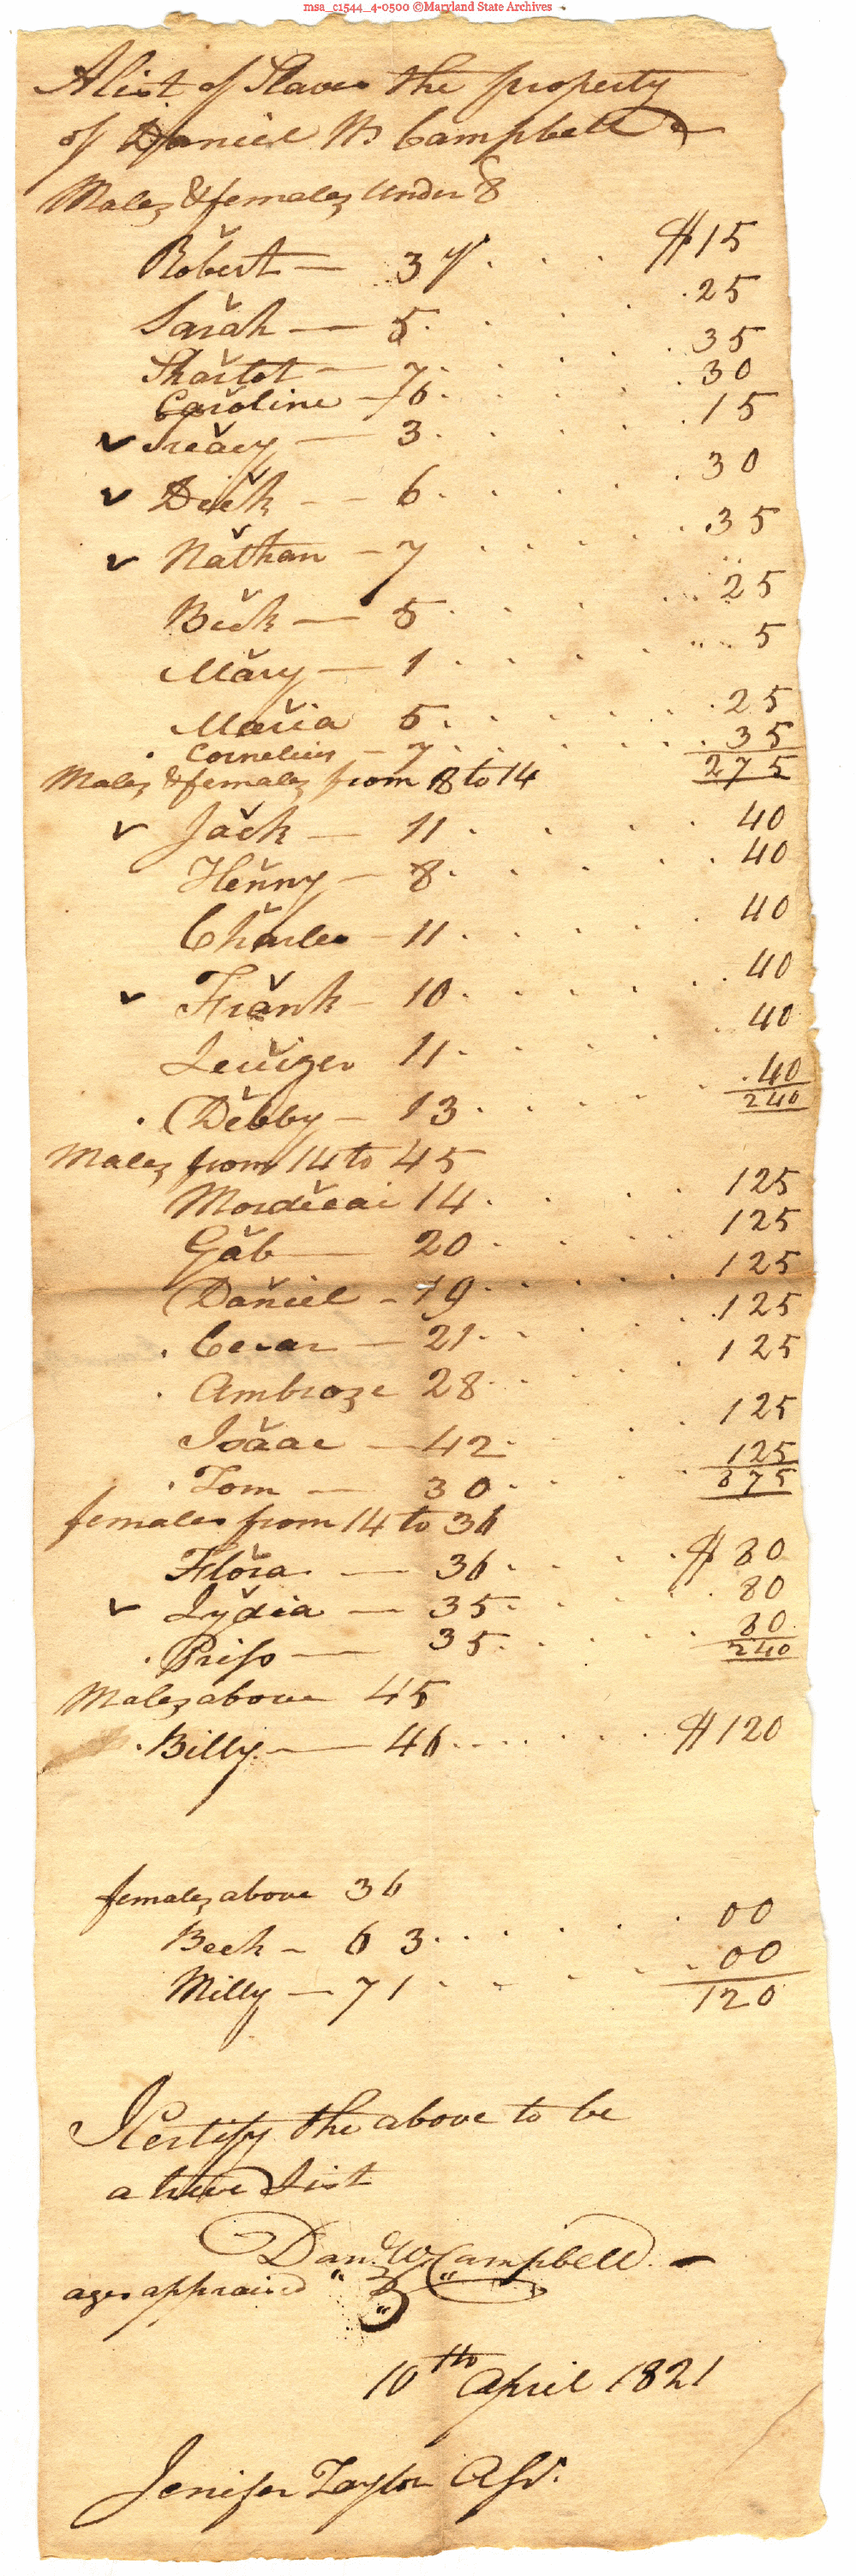 msa_c1544_4-0500 ©Maryland State Archives
A list of Slaves the property
of Daniel W Campbell
Males & females under 8
Robert — 3 y . . . $15
Sarah — 5 . . . 25
7 . . . 35
Caroline — 6 . . . 30
✓ Treacy — 3 . . . 15
✓ Dick — 6 . . . 30
✓ Nathan — 7 . . . 35
Beck — 5 . . . 25
Mary — 1 . . . 5
Maria 5 . . . 25
. Cornelius — 7 . . . 35
Males & females from 8 to 14 275
✓ Jack — 11 . . . 40
Henny — 8 . . . 40
Charles — 11 . . . 40
✓ Frank — 10 . . . 40
11 . . . 40
. Debby — 13 . . . 40
240
Males from 14 to 45
Mordecai 14 . . . 125
Gab — 20 . . . 125
Daniel — 19 . . . 125
. Cesar — 21 . . . 125
. Ambroze 28 . . . 125
Isaac — 42 . . . 125
. Tom — 30 . . . 125
875
females from 14 to 36
Flora — 36 . . . $80
✓ Lydia — 35 . . . 80
. Priss — 35 . . . 80
240
Males above 45
. Billy — 46 . . . $120
females above 36
Beck — 63 . . . 00
Milly — 71 . . . 00
120
I Certify the above to be
a true List
Dan. W. Campbell
ages appraised
10th April 1821
Jenifer Taylor Assr.